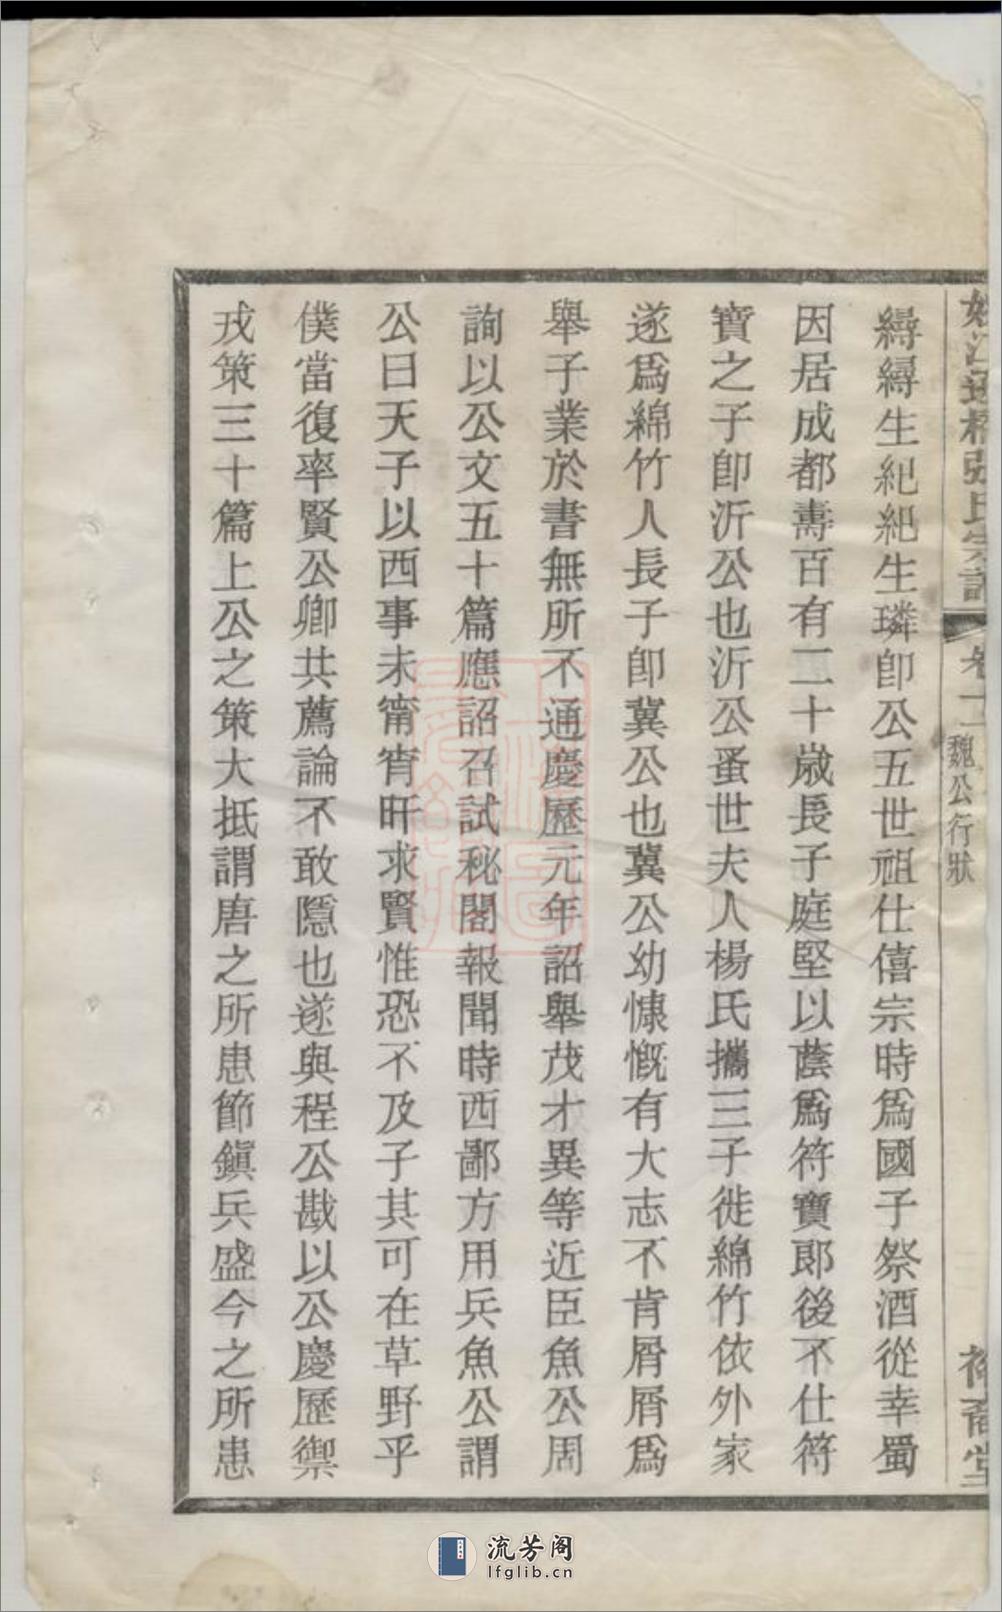 氏宗譜 卷一 魏公行狀
繟繟生紀紀生璘卽公五世祖仕僖宗時爲國子祭酒從幸蜀
因居成都壽百有二十歲長子庭堅以蔭爲符寶郎後不仕符
寶之子卽沂公也沂公蚤世夫人楊氏攜三子徙綿竹依外家
遂爲綿竹人長子卽冀公也冀公幼慷慨有大志不肯屑屑爲
舉子業於書無所不通慶歷元年詔舉茂才異等近臣魚公周
詢以公文五十篇應詔召試秘閣報聞時西鄙方用兵魚公謂
公曰天子以西事未甯宵旰求賢惟恐不及子其可在草野乎
僕當復率賢公卿共薦論不敢隱也遂與程公戡以公慶歷禦
戎策三十篇上公之策大抵謂唐之所患節鎮兵盛今之所患
流芳阁
lfglib.cn